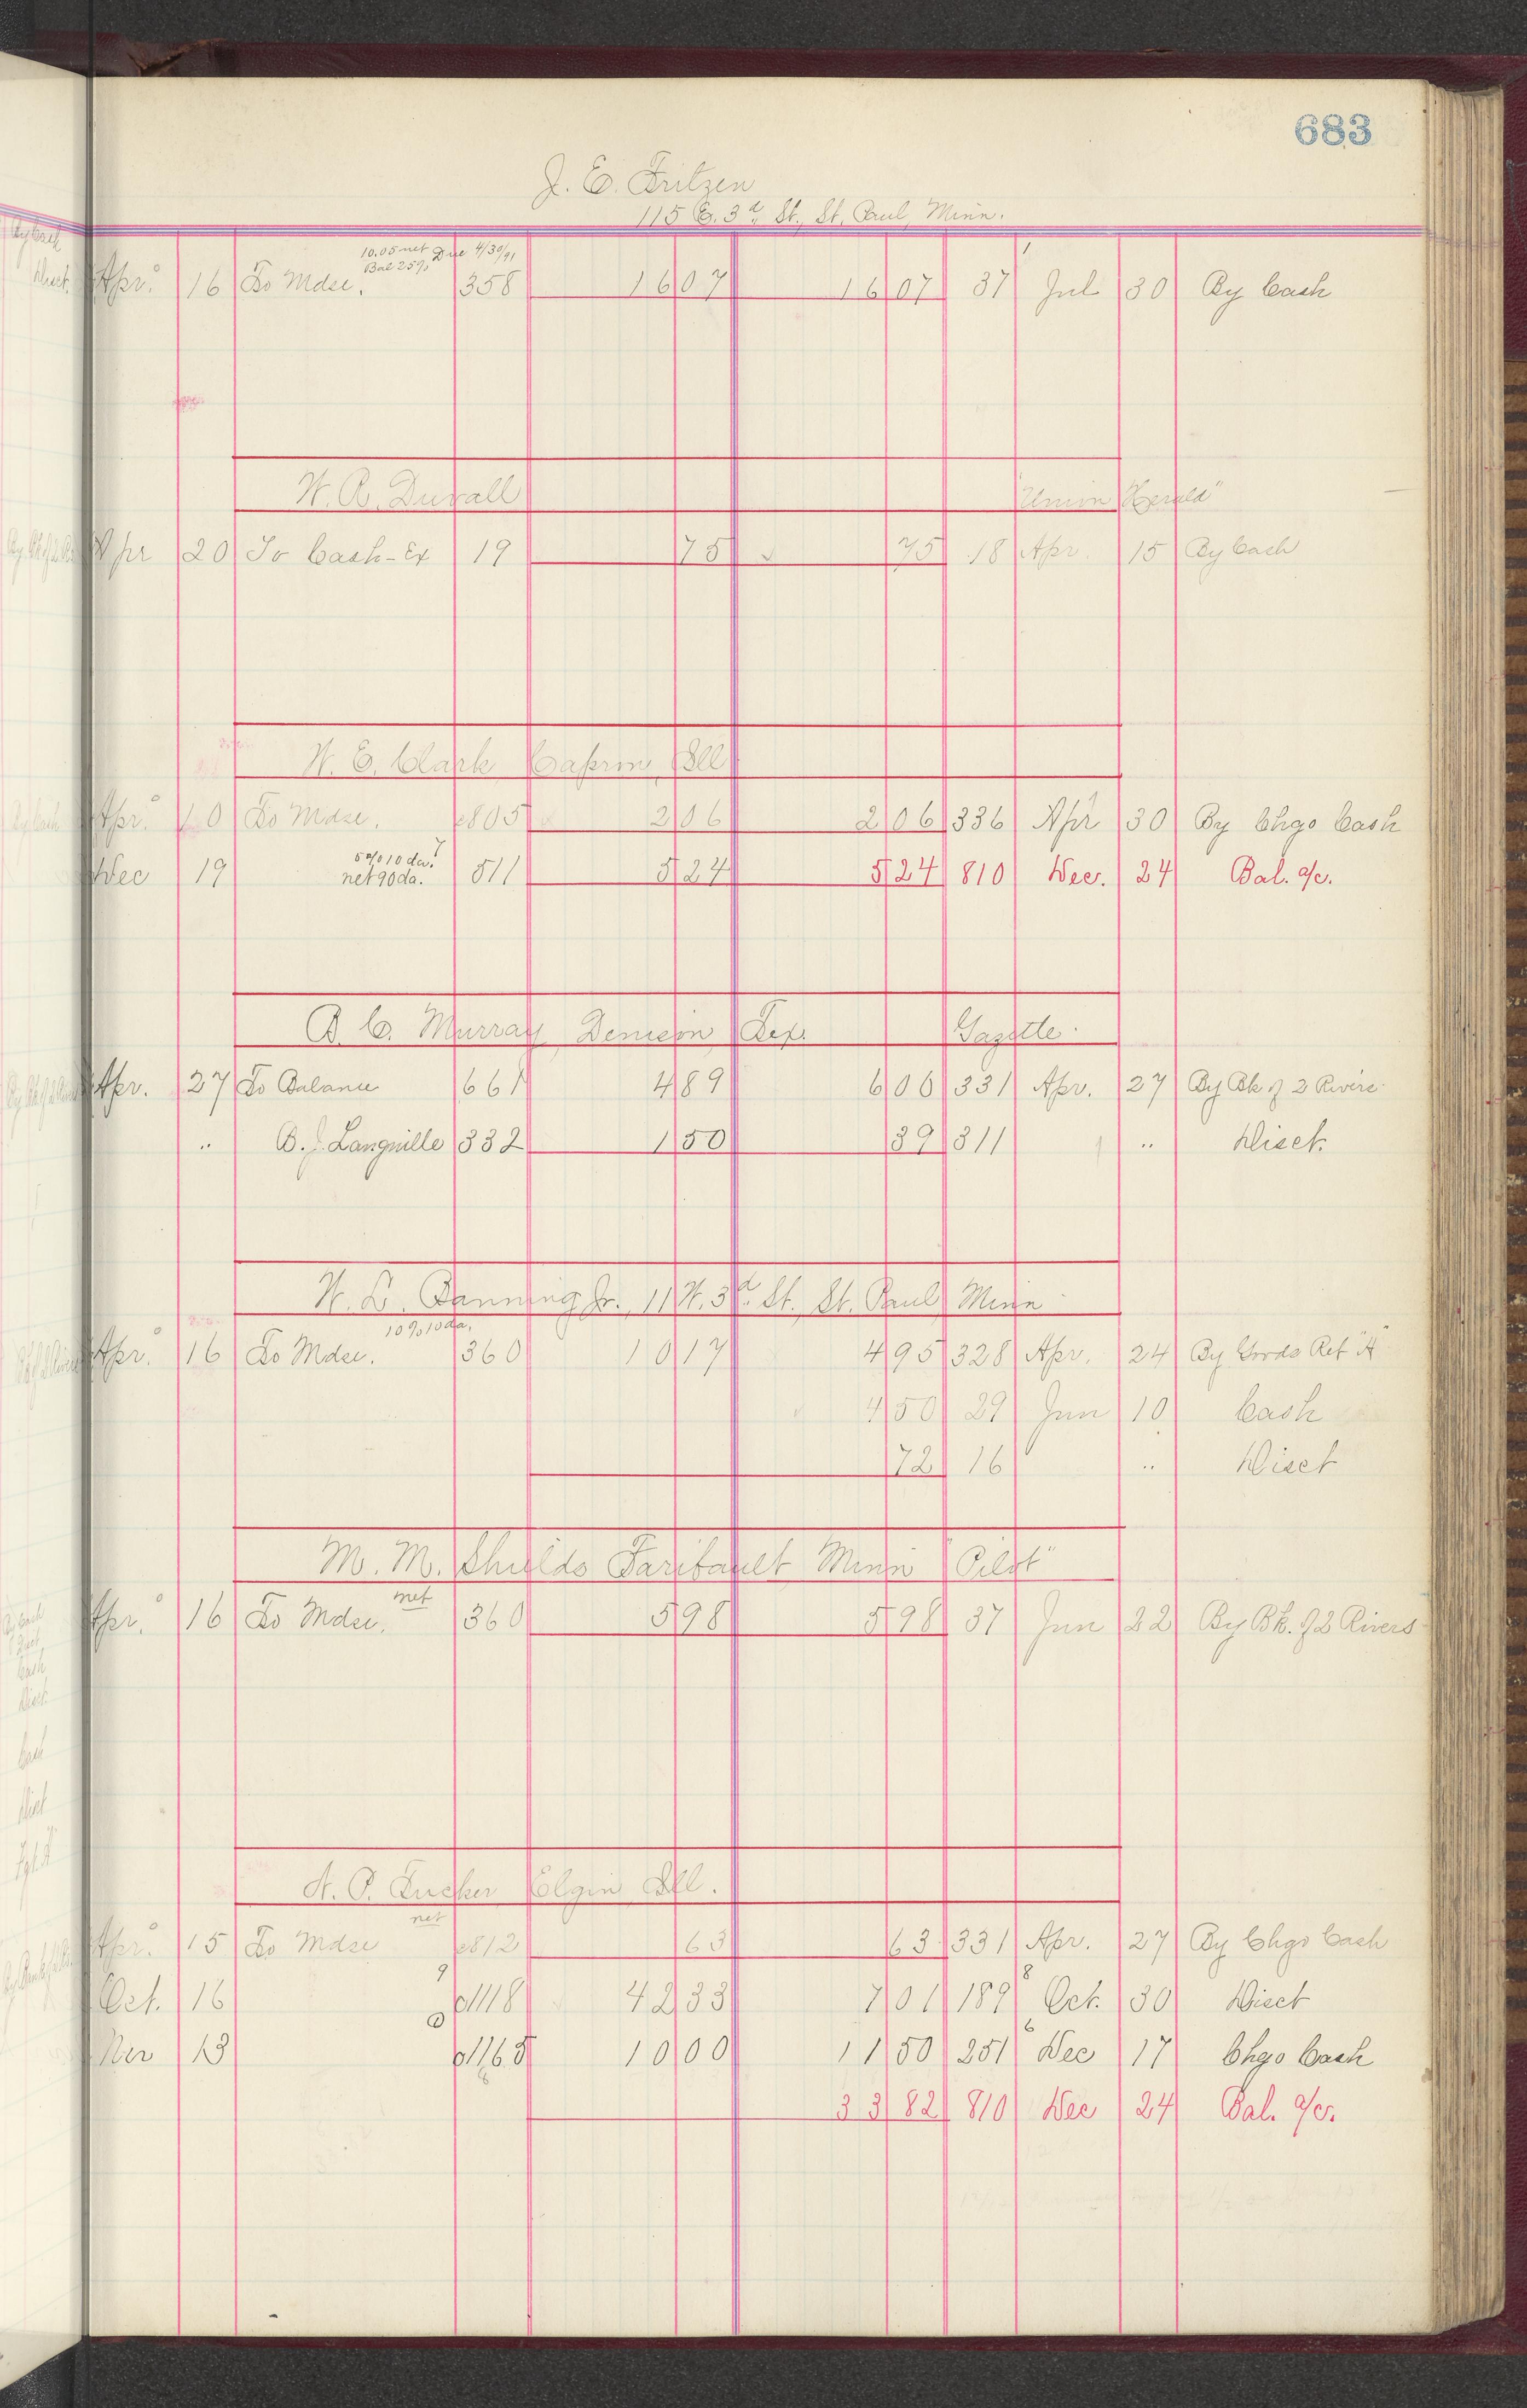 683
J. E. Fritzen
115 E. 3d St., St. Paul, Minn.
10.05 net Due 4/30/91
Bal 25%
Apr. 16 To Mdse. 358 16 07 16 07 37 Jul 30 By Cash
W. R. Duvall "Union Herald"
Apr 20 To Cash-Ex 19 75 75 18 Apr. 15 By Cash
W. E. Clark Capron, Ill
Apr. 10 To Mdse. e805 2 06 2 06 336 Apr 30 By Chgo Cash
5% 10 da.
Dec 19 net 90 da. 511 5 24 5 24 810 Dec. 24 Bal. a/c.
B. C. Murray, Denison Tex. Gazette
Apr. 27 To Balance 661 4 89 6 00 331 Apr. 27 By Bk of 2 Rivers
.. B. J. Langville 332 1 50 39 311 .. Disct.
W. L. Banning Jr., 11 W. 3d St. St. Paul Minn
10% 10 da.
Apr. 16 To Mdse. 360 10 17 4 95 328 Apr. 24 By Goods Ret "A"
4 50 29 Jun 10 Cash
72 16 .. Disct
M. M. Shields Faribault Minn "Pilot"
net
Apr. 16 To Mdse. 360 5 98 5 98 37 Jun 22 By Bk. of 2 Rivers
A. P. Tucker Elgin Ill.
net
Apr. 15 To Mdse e812 63 63 331 Apr. 27 By Chgo Cash
Oct. 16 9 c1118 42 33 7 01 189 8 Oct. 30 Disct
Nov 13 c1165 10 00 11 50 251 6 Dec 17 Chgo Cash
33 82 810 Dec 24 Bal. a/c.